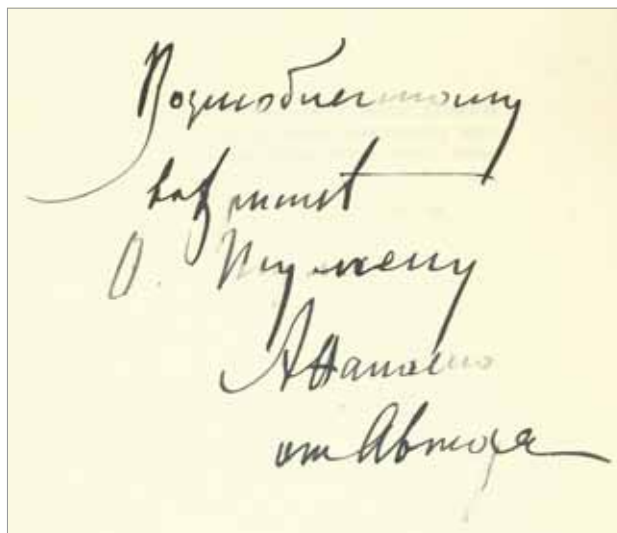 Возлюбленному
во Христѣ
О. Игумену
Аѳанасію
от Автора